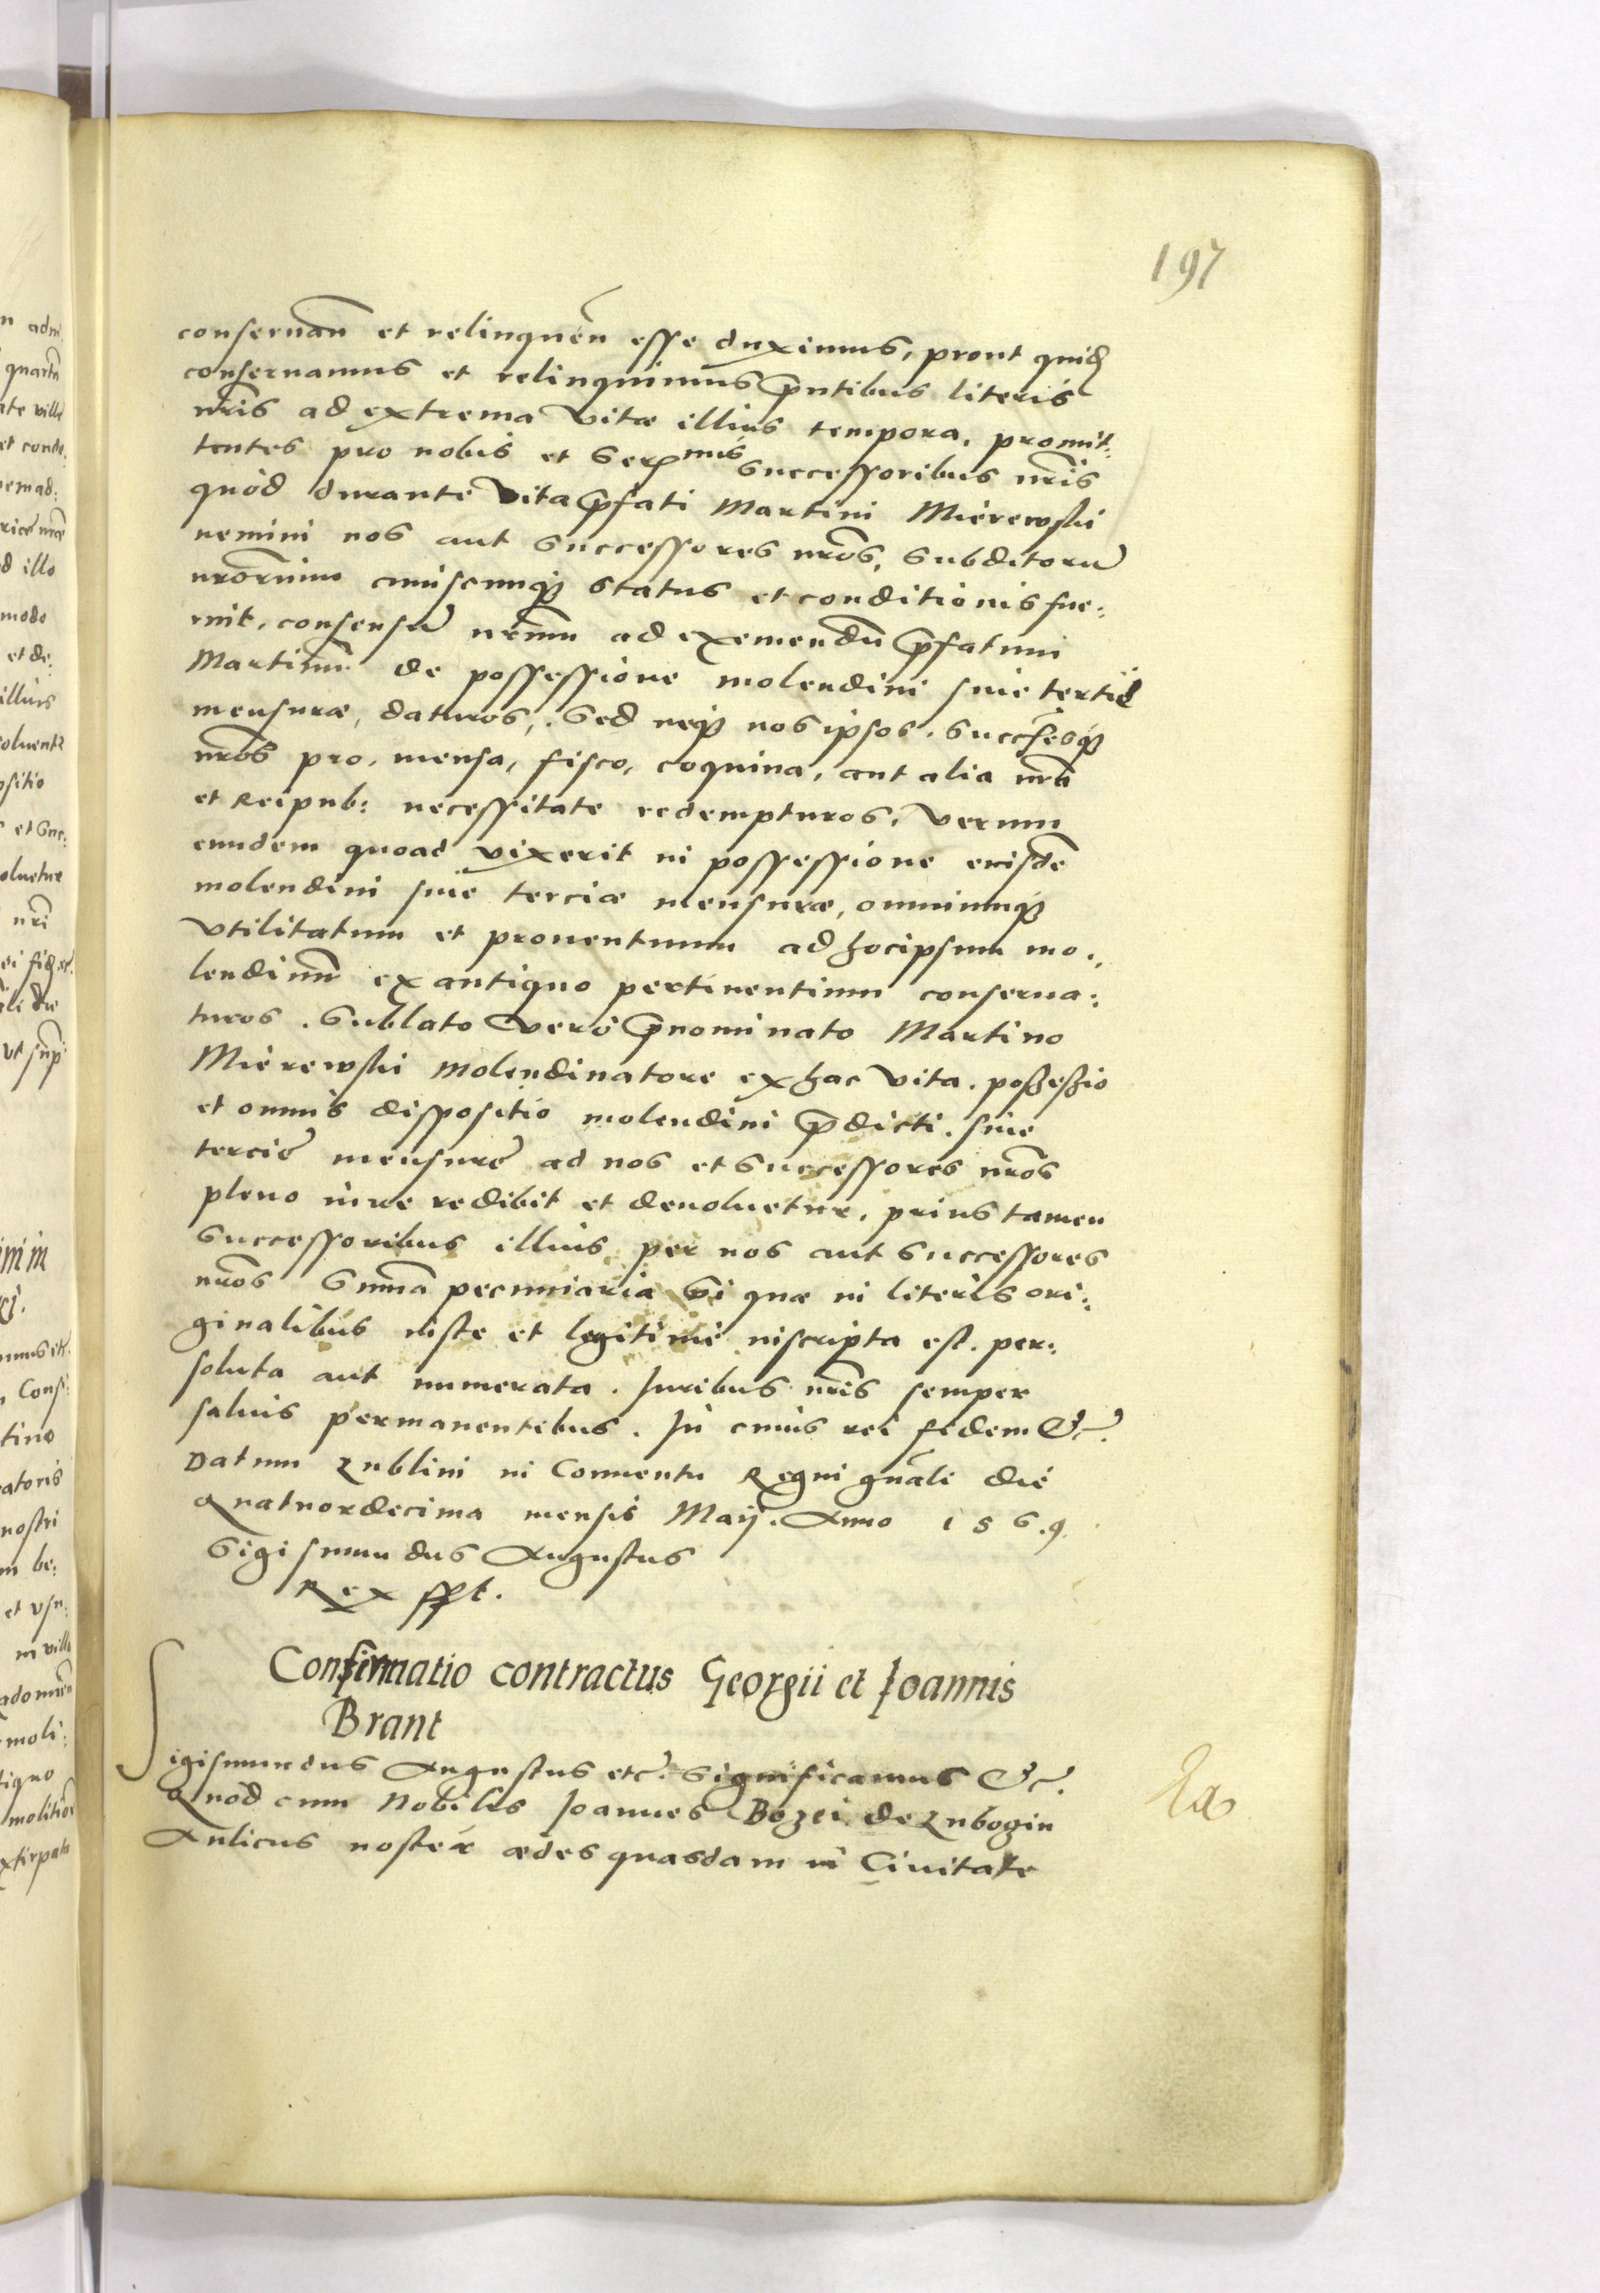 197
conseruan̄ et relinquen̄ esse duximus, prout quidē
conseruamus et relinquimus p̄ntibus literis
nr̄is ad extrema vitæ illius tempora, promit:
tentes pro nobis et Ser^mis Successoribus nr̄is
quòd durante vita p̄fati Martini Mierewski
nemini nos aut Successores nr̄os, Subditorū
nr̄orum cuiuscunq₃ status et conditionis fue:
rint, consensū nr̄um ad exemendū p̄fatum
Martinū de possessione molendini siue tertiæ
mensuræ, daturos, Sed neq₃ nos ipsos, Succēsesq₃
nr̄os pro mensa, fisco, coquina, aut alia nr̄a
et Reipub: necessitate redempturos, verum
eundem quoad vixerit in possessione eiusdē
molendini siue terciæ mensuræ, omniumq₃
vtilitatum et prouentuum ad hocipsum mo:
lendinū ex antiquo pertinentium conserua:
turos. Sublato verò p̄nominato Martino
Mierewski molendinatore ex hac vita, possessio
et omnis dispositio molendini p̄dicti, siue
tercię mensurę ad nos et Successores nr̄os
pleno iure redibit et deuoluetur, prius tamen
Successoribus illius per nos aut Successores
nr̄os Sum̄a pecuniaria si quæ in literis ori:
ginalibus iuste et legitime inscripta est, per:
soluta aut numerata. Iuribus nr̄is semper
saluis permanentibus. In cuius rei fidem &c.
Datum Lublini in Conuentu Regni gn̄ali die
Quatuordecima mensis Maij. Anno 1569.
Sigismundus Augustus
Rex sst.
Confirmatio contractus Georgii et Joannis
Brant
Sigismundus Augustus etc. Significamus &c.
Quod cum Nobilis Joannes Bozei de Lubogin
Aulicus noster ædes quasdam in Ciuitate